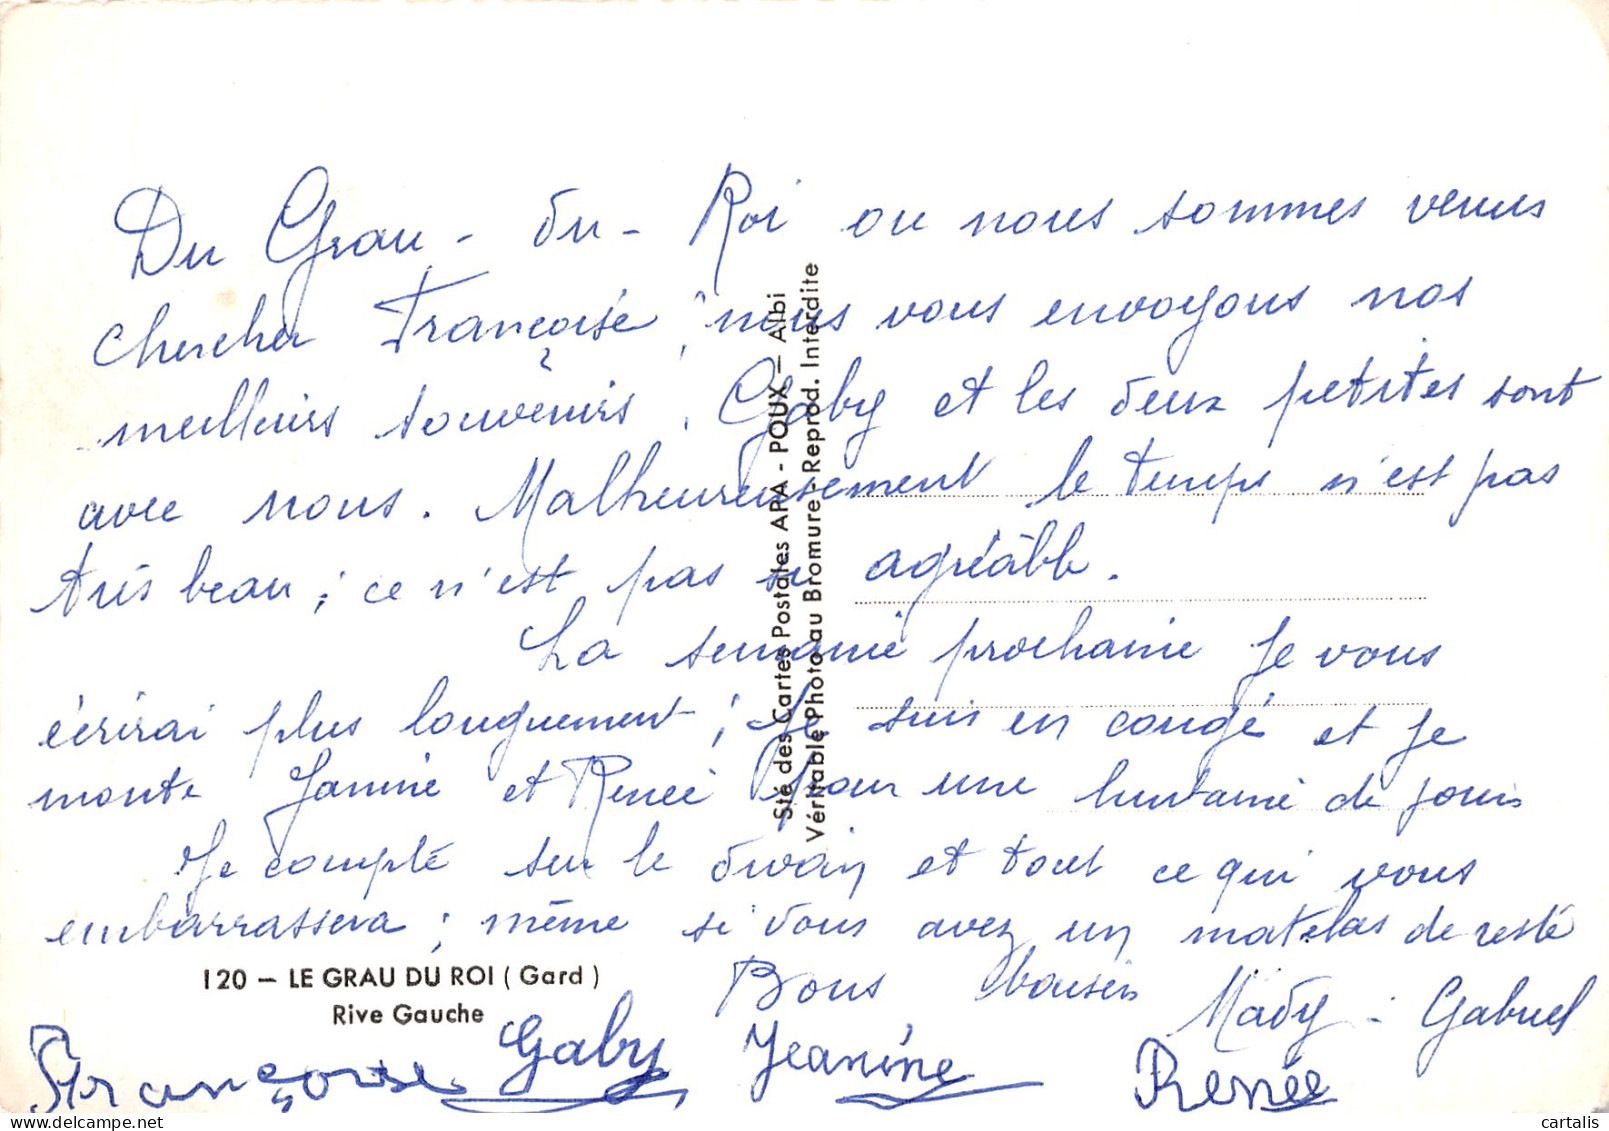 Du Grau - du - Roi ou nous sommes venus
chercher Françoise, nous vous envoyons nos
meilleurs souvenirs. Gaby et les deux petites sont
avec nous. Malheureusement le temps n'est pas
très beau ; ce n'est pas si agréable.
La semaine prochaine je vous
écrirai plus longuement ; je suis en congé et je
monte Janine et Renée pour une huitaine de jours
Je compte sur le divan et tout ce qui vous
embarrassera ; même si vous avez un matelas de reste
Bons baisers Mady - Gabriel
Françoise Gaby Jeanine Renée
120 — LE GRAU DU ROI ( Gard )
Rive Gauche
Sté des Cartes Postales ARA - POUX — Albi
Véritable Photo au Bromure - Reprod. Interdite
cartalis